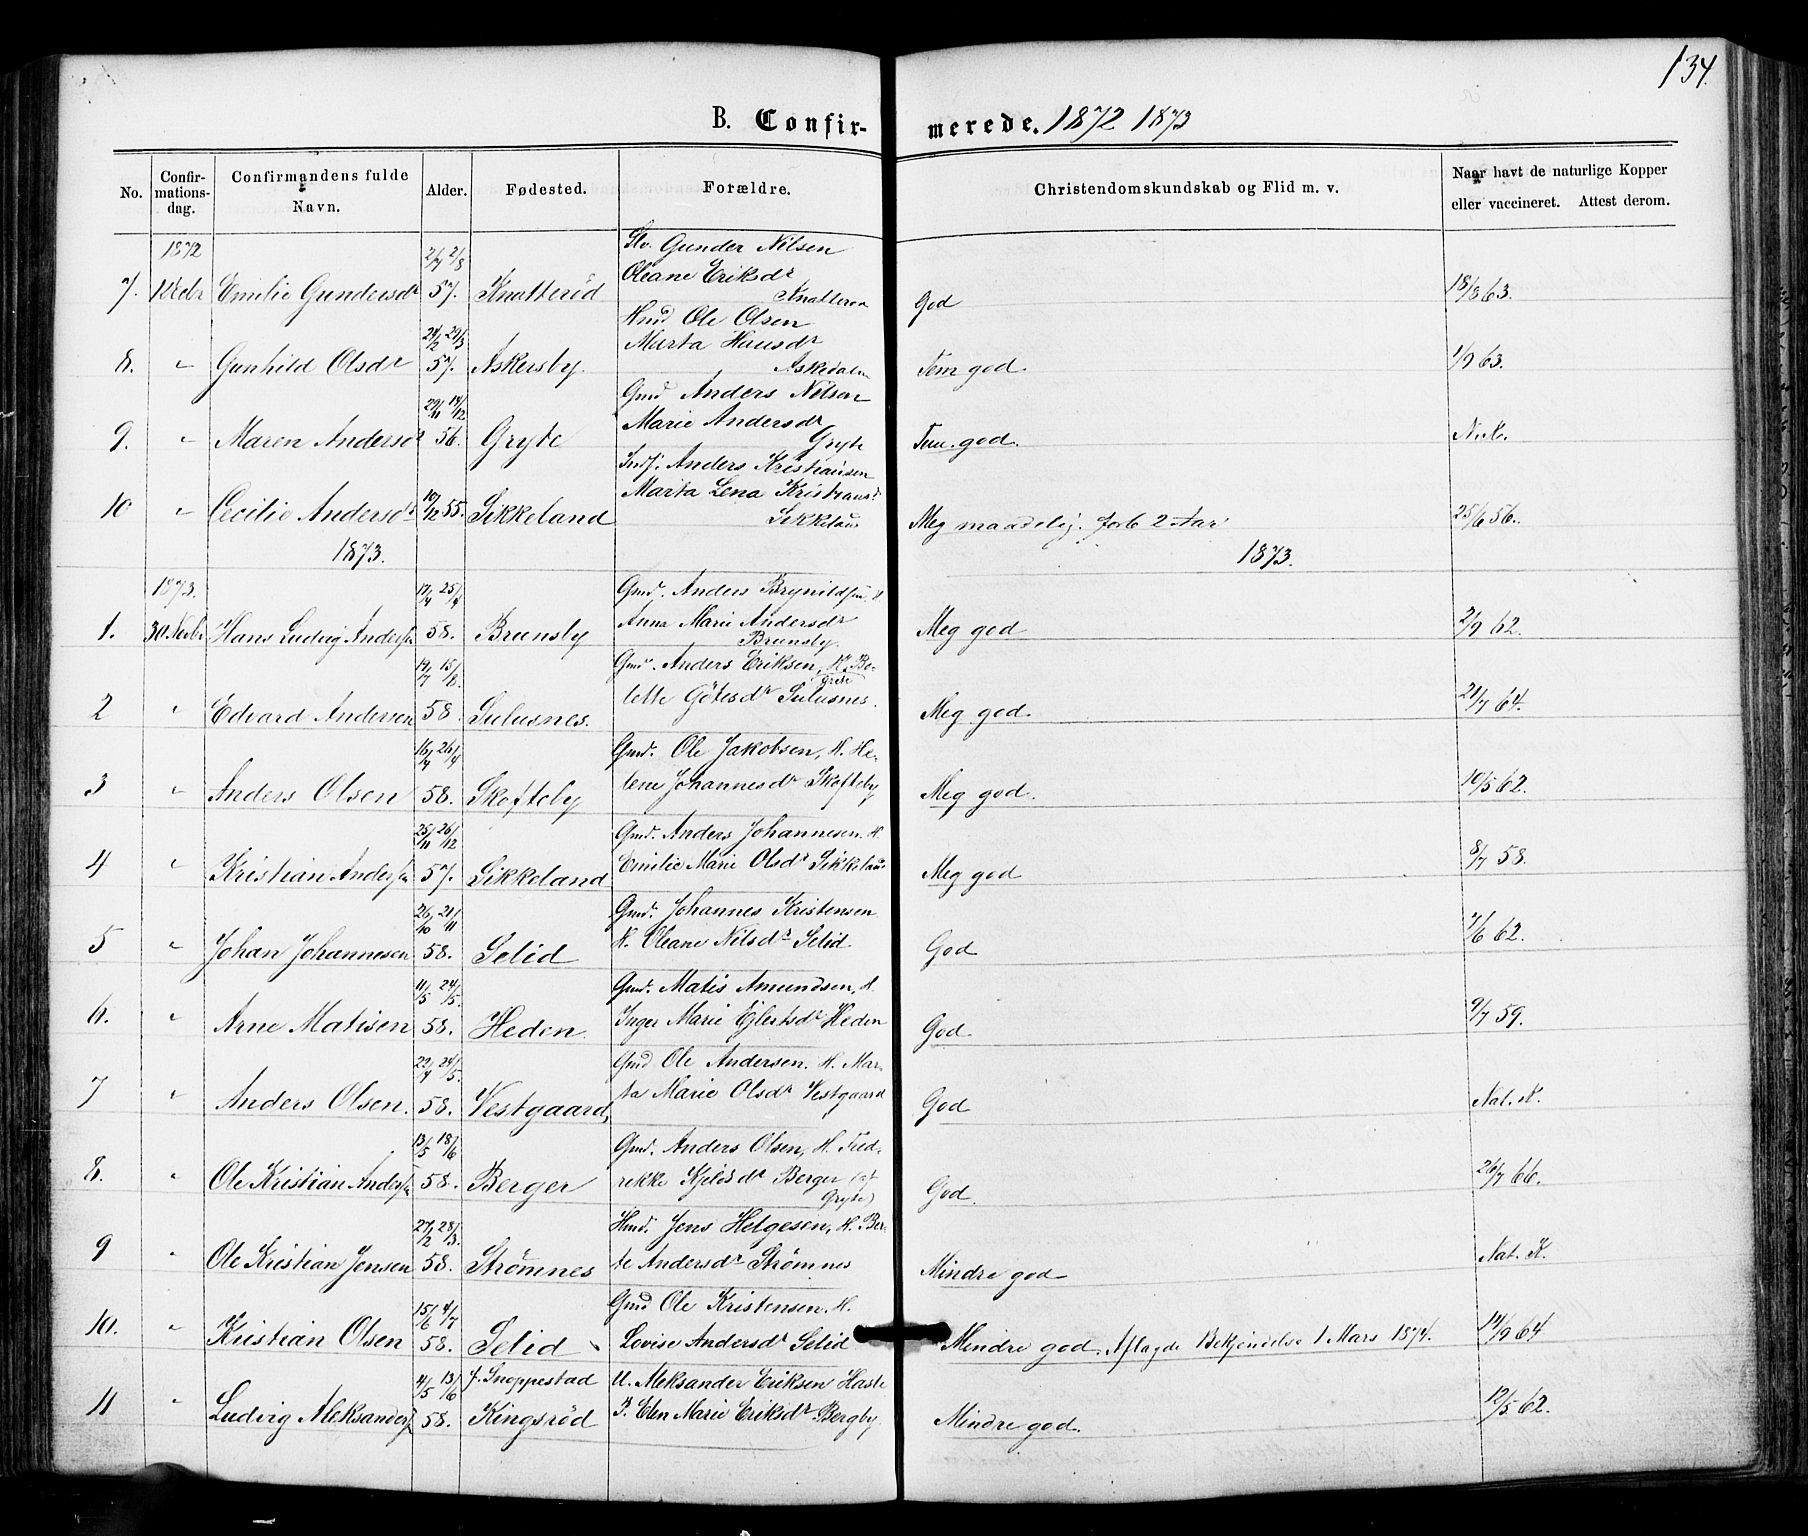 134.
B. Confir- merede. 1872 1873
No. Confir-mations-dag. Confirmandens fulde Navn. Alder. Fødested. Forældre. Christendomskundskab og Flid m. v. Naar havt de naturlige Kopper eller vaccineret. Attest derom.
1872 2/7 2/8 Gunder Nilsen
Oleane Eriksdr
7. Emilie Gundersdr 57. Knatterød God 18/8 63.
Hmd Ole Olsen
29/3 Marta Hansdr
8. " Gunhild Olsdr 57. Askersby Askedalen Tem. god. 1/9 63.
Gmd Anders Nilsen
29/11 14/12 Marie Andersdr
9. " Maren Andersdr 56. Gryte Gryte Tem. god.
Indf. Anders Kristiansen
10/12 55. Marta Lena Kristiansdr
10 " Cecilie Andersdr Sikkeland Meg maadelig. forb 2 Aar 25/6 56.
1873. 1873.
1873. 17/4 25/4 Gmd. Anders Brynildsen. H.
1. 30 Novbr Hans Ludvig Andersen 58. Brunsby Anna Marie Andersdr Meg god 2/9 62.
Brunsby.
19/7 15/8. Gmd. Anders Eriksen, H. Be-
grete
2 " Edvard Andersen 58. Sulusnes. lette Götesdr Sulusnes. Meg god. 21/7 64.
16/4 26/4 Gmd. Ole Jakobsen, H. He-
3 " Anders Olsen 58. Skofteby lene Johannesdr Skofteby Meg god. 10/5 62.
25/11 26/12 Gmd. Anders Johannesen. H.
4 " Kristian Andersen 57. Sikkeland Emilie Marie Olsdr Meg god 8/7 58.
26/10 21/11 Gmd. Johannes Kristensen
5 " Johan Johannesen 58. Selid H. Oleane Nilsdr Selid. God 7/6 62.
11/5 24/5. Gmd. Matis Amundsen, H.
6. " Arne Matisen 58. Heden. Inger Marie Ejlertsdr Heden God 9/7 59.
22/4 24/5. Gmd Ole Andersen. H. Mar-
7 " Anders Olsen. 58. Vestgaard, ta Marie Olsdr Vestgaard God Nat. K.
13/5 18/6 Gmd. Anders Olsen, H. Fred-
8. " Ole Kristian Andersen 58. Berger rikke Kjelsdr Berger (af God. 26/7 66.
Gryte)
27/2 28/3. Hmd. Jens Helgesen, H. Ber-
9 " Ole Kristian Jensen 58. Strømnes te Andersdr Strømnes Mindre god Nat. K.
15/6 4/7 Gmd Ole Kristensen. H.
10. " Kristian Olsen 58. Selid Lovise Andersdr Selid Mindre god. Aflagde Bekjendelse 1 Mars 1874. 14/9 64
4/5 13/6 f. Snoppestad U. Aleksander Eriksen Hasle
11 " Ludvig Aleksandersen 58. Kingsrød P. Elen Marie Eriksdr Bergby. Mindre god. 12/5 62.